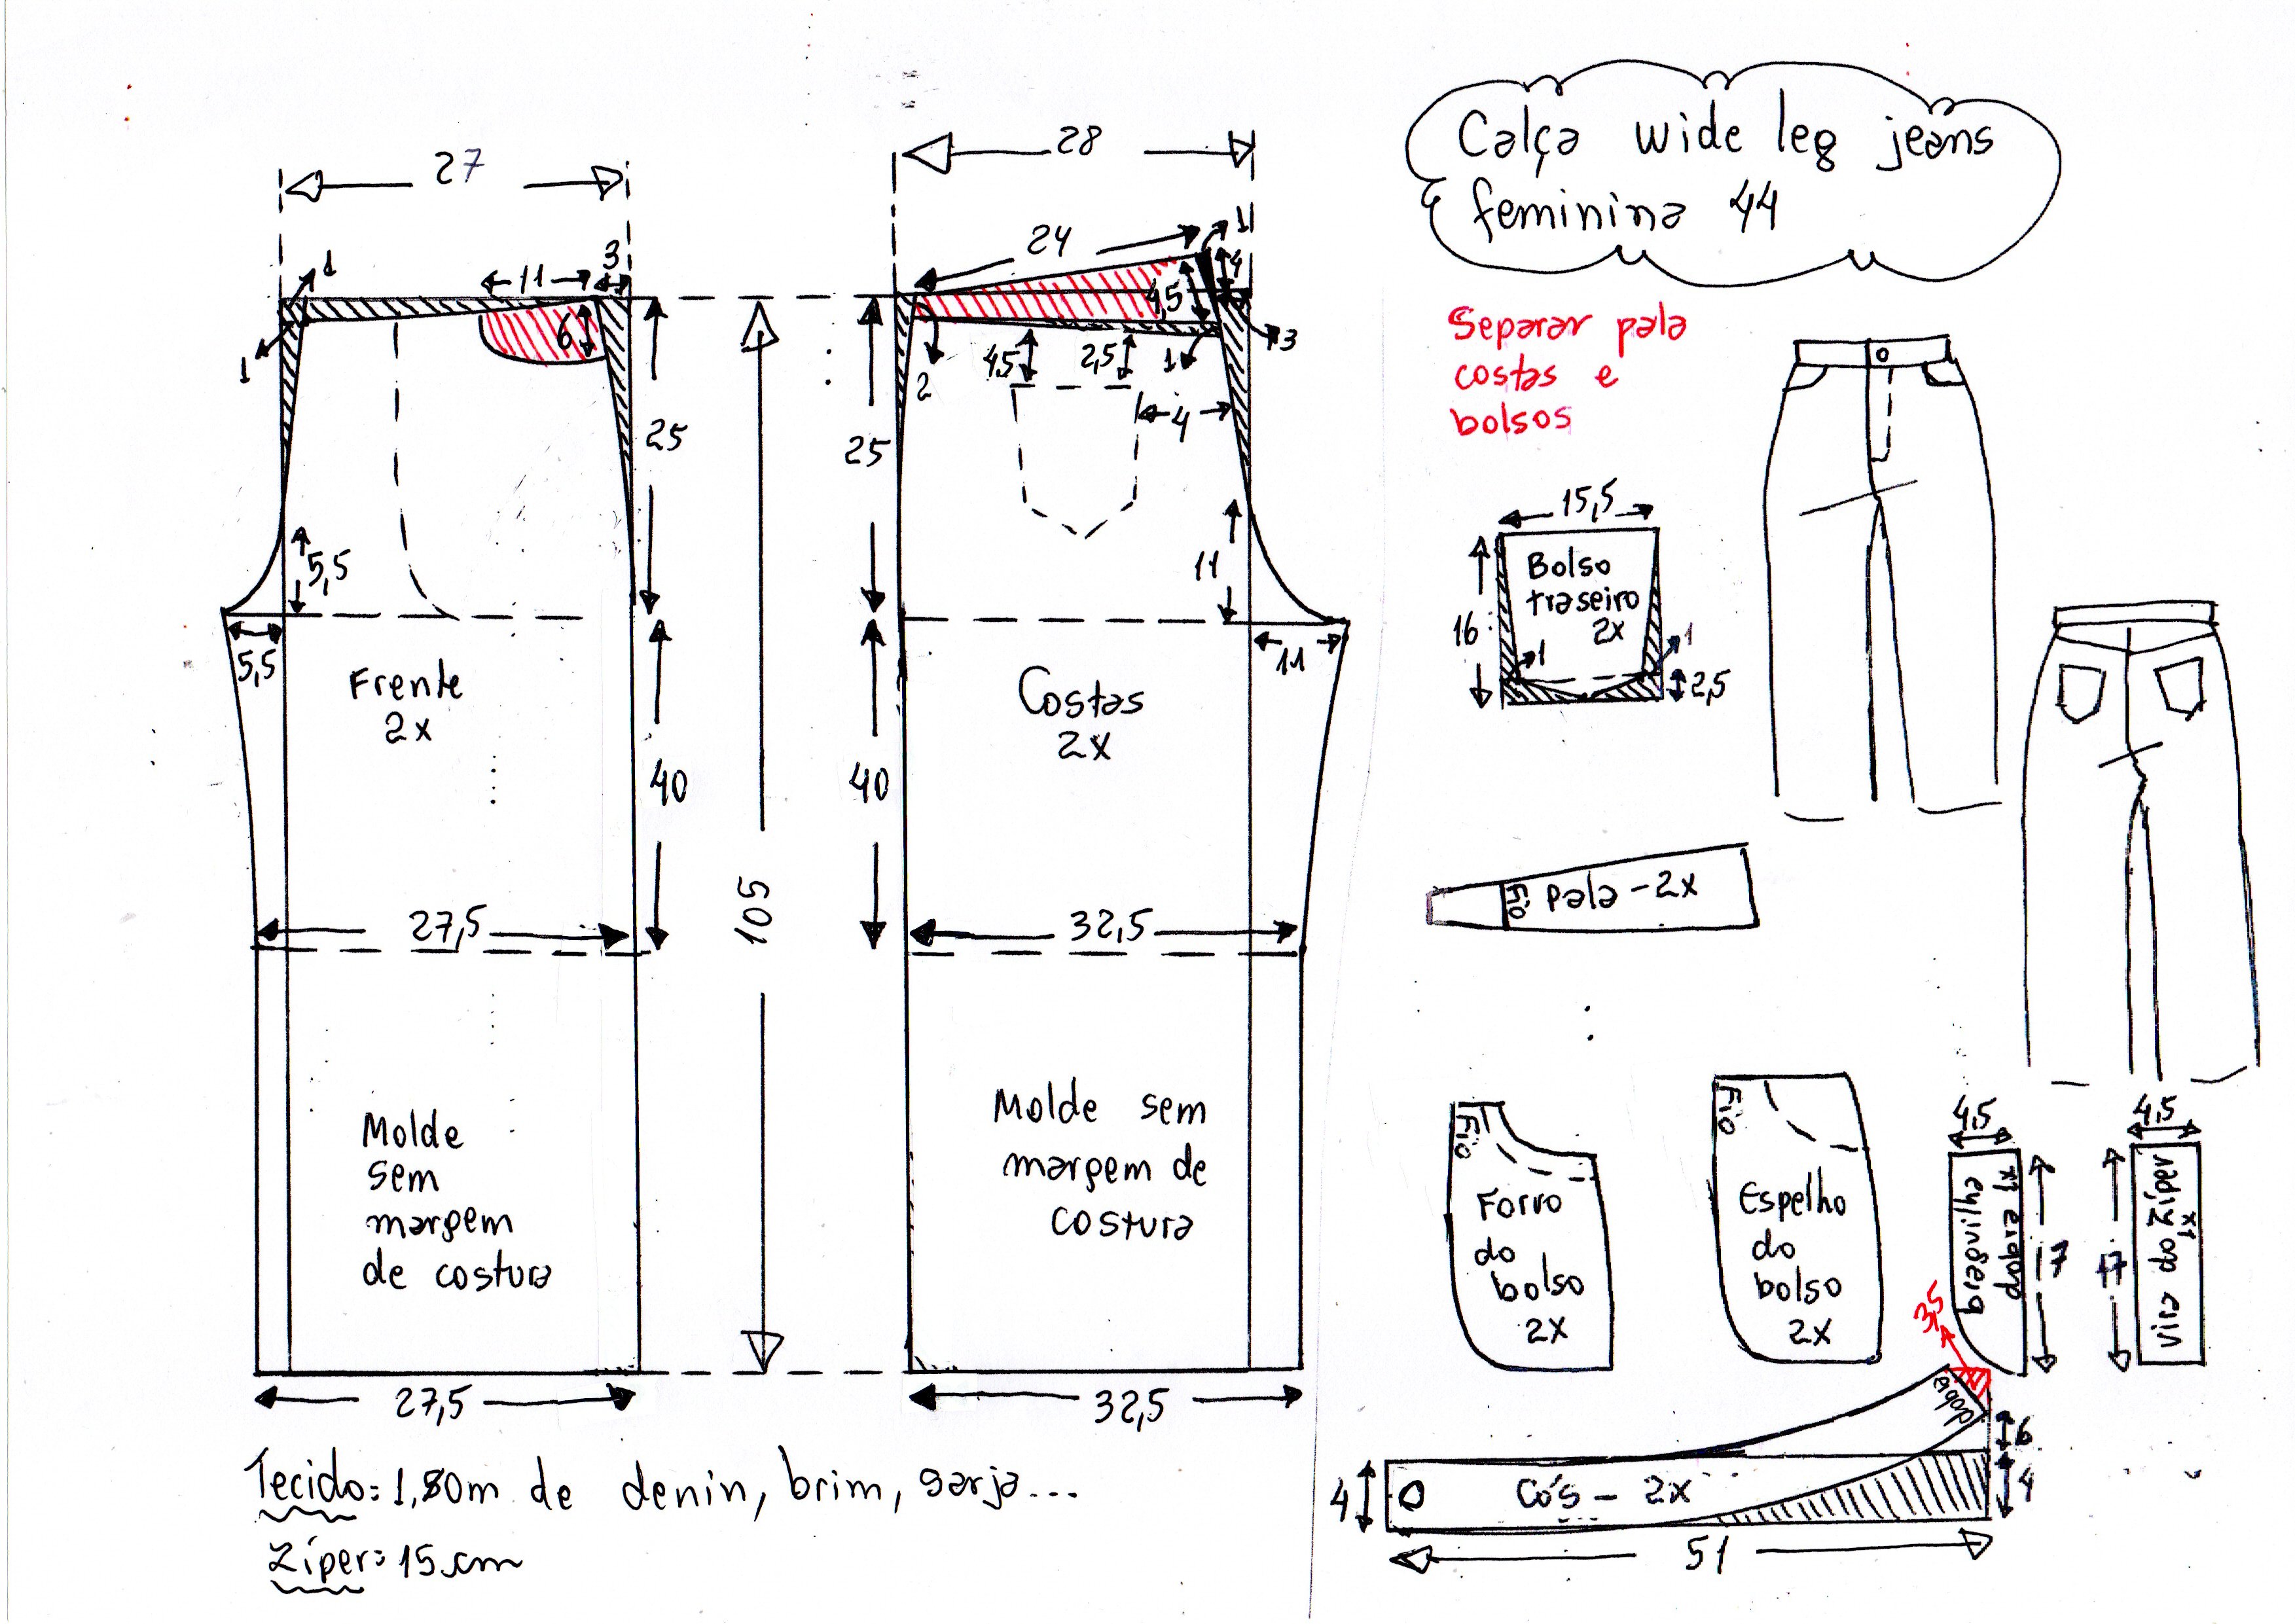 Calça wide leg jeans
feminina 44
27
28
1
11
3
24
1
4
1
6
25
4,5
3
25
2
4,5
2,5
1
4
5,5
5,5
11
11
Frente
2x
Costas
2x
40
40
105
27,5
32,5
Molde
sem
margem
de costura
Molde sem
margem de
costura
27,5
32,5
Tecido: 1,80m de denin, brim, sarja...
Zíper: 15 cm
Separar pala
costas e
bolsos
15,5
16
Bolso
traseiro
2x
1
1
2,5
Fio
Pala - 2x
Fio
Forro
do
bolso
2x
Fio
Espelho
do
bolso
2x
4,5
braguilha
dobra 1x
17
4,5
vira do zíper
1x
17
3,5
dobra
6
4
4
Cós - 2x
51